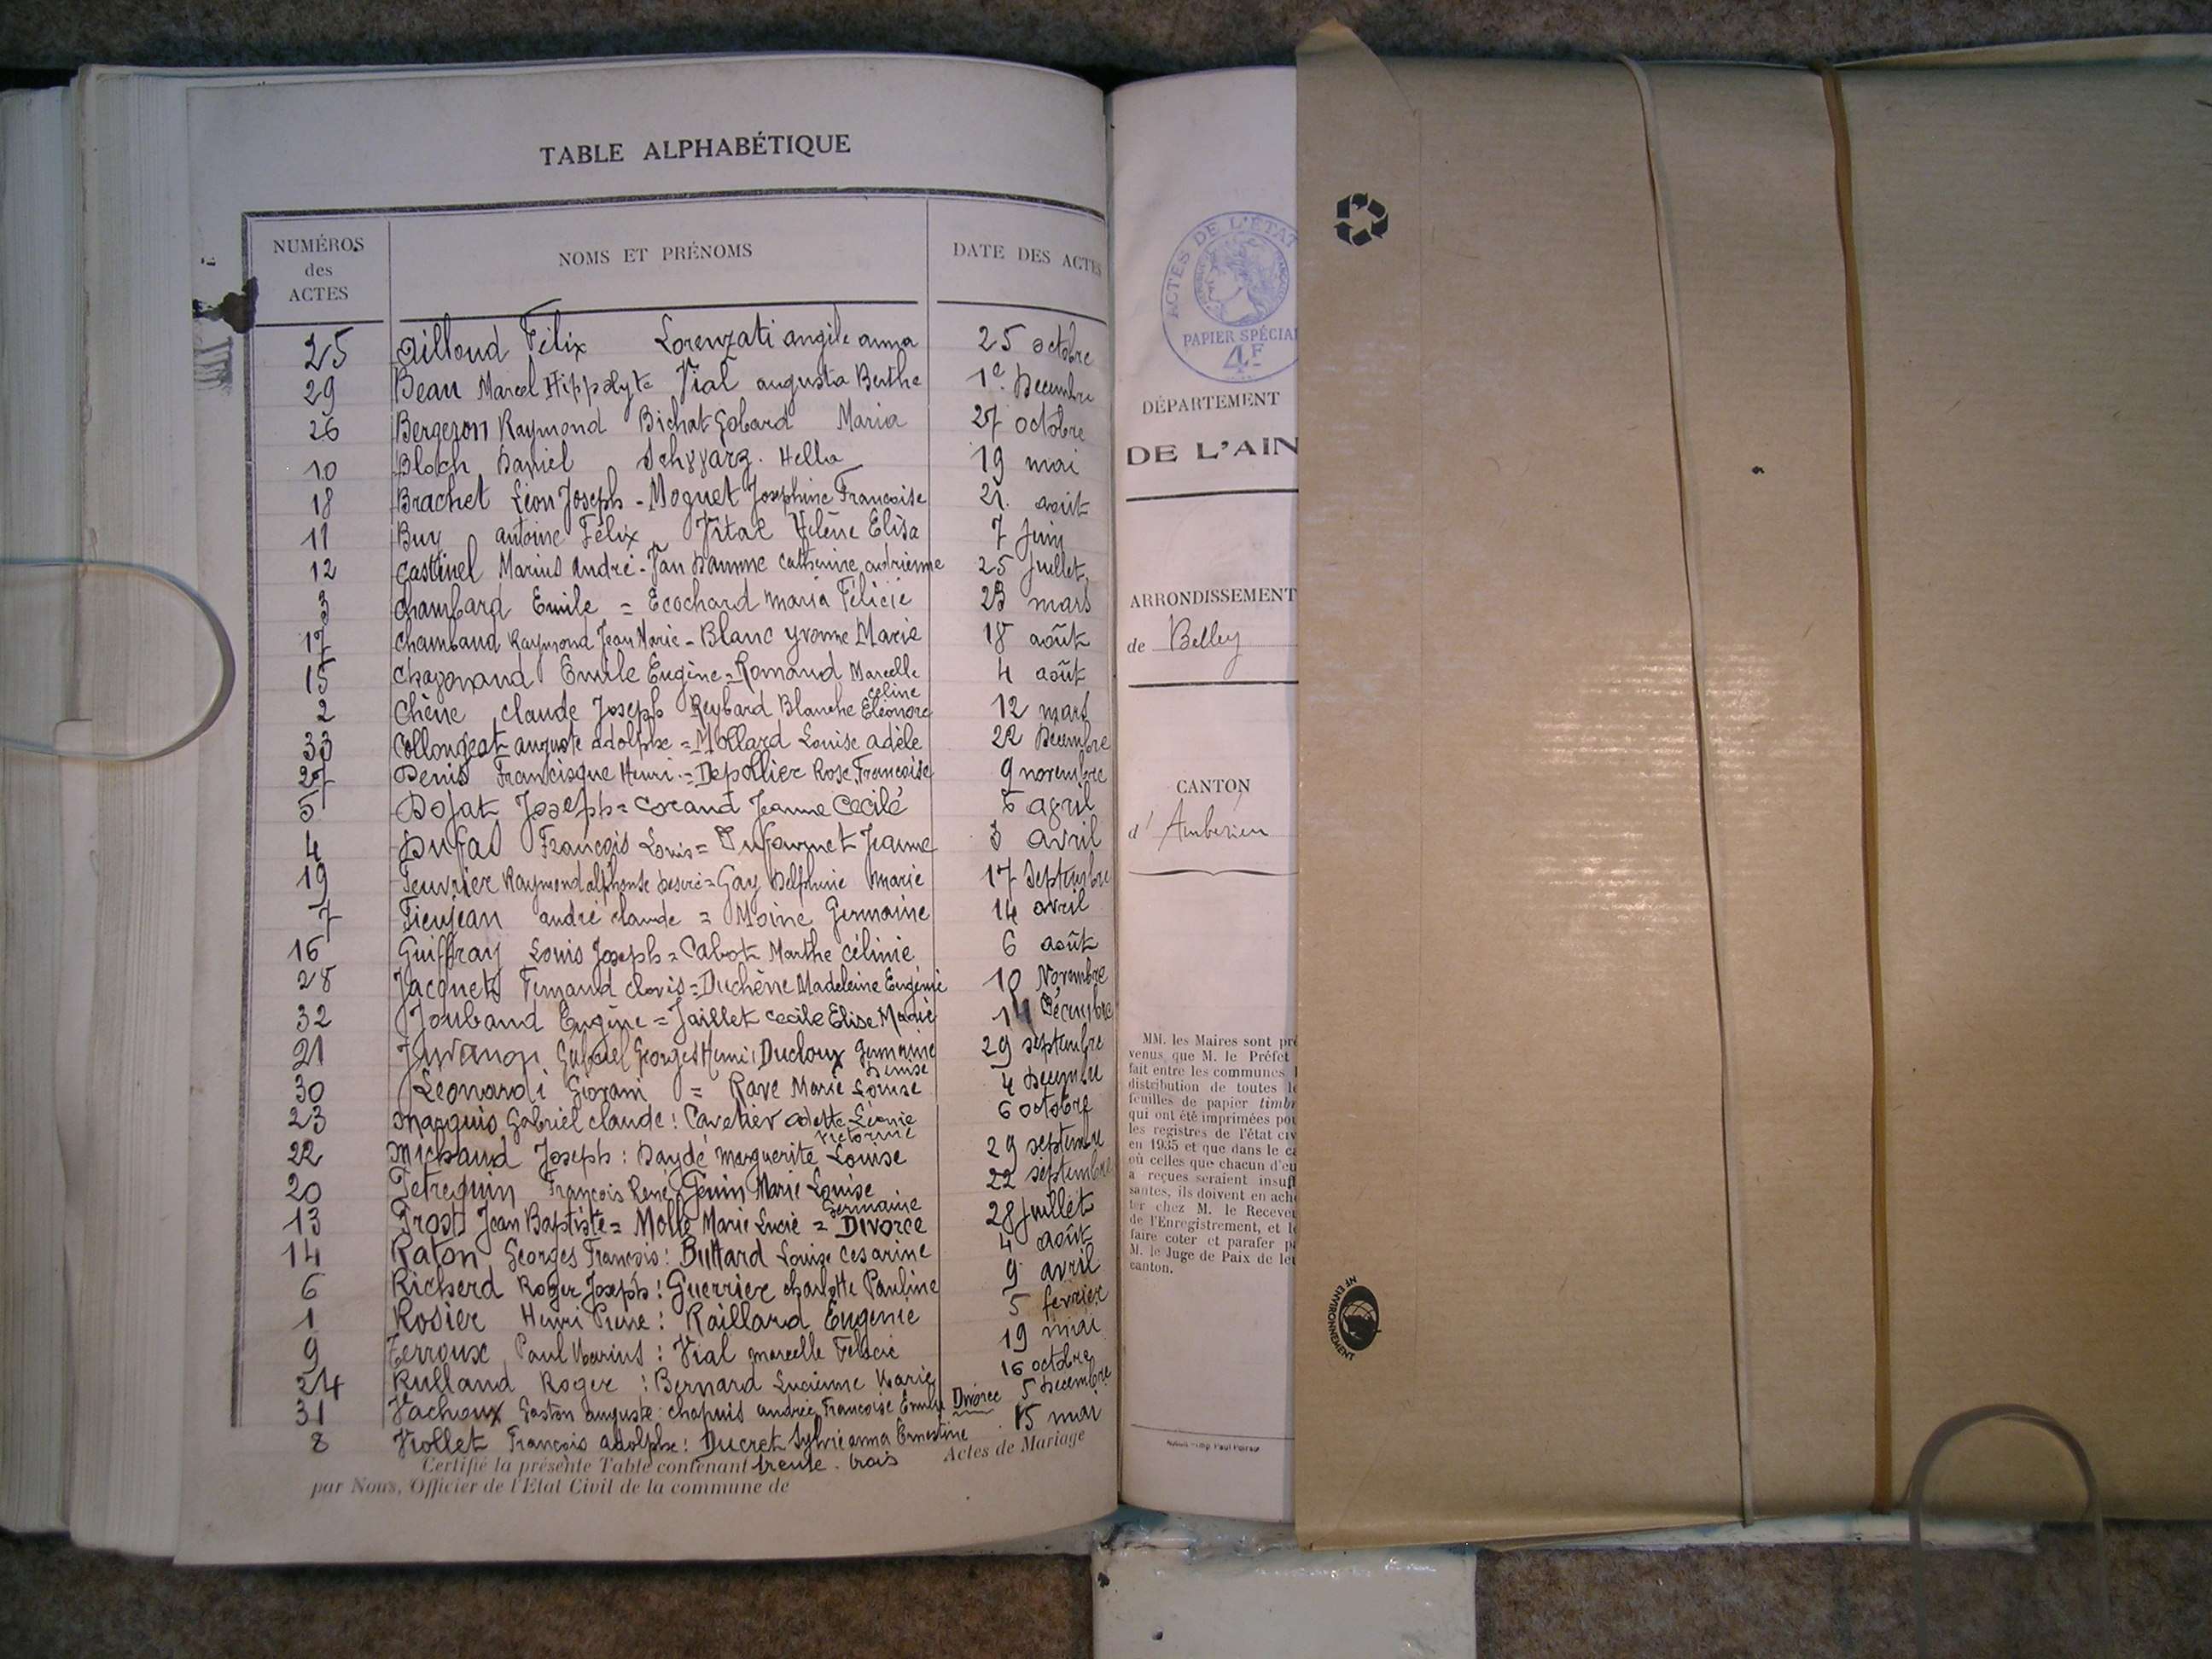 TABLE ALPHABÉTIQUE
NUMÉROS des ACTES
NOMS ET PRÉNOMS
DATE DES ACTES
25 Ailloud Félix Lorenzati angèle anna 25 octobre
29 Beau Marcel Hippolyte Vial augusta Berthe 1e Decembre
26 Bergeron Raymond Bichat-Gobard Maria 27 octobre
10 Bloch Daniel Schwarz. Hella 19 mai
18 Brachet Léon Joseph - Moguet Josephine Francoise 21. août
11 Buy antoine Félix Vital Helène Elisa 7 Juin
12 Castinel Marius andré - Van Damme catherine adrienne 25 Juillet
3 chambard Emile = Ecochard maria Félicie 23 mars
17 chambaud Raymond Jean Marie - Blanc yvonne Marie 18 août
15 Emile Eugène = Romand Marcelle celine 4 août
2 Chêne claude Joseph Reybard Blanche Eléonore 12 mars
33 Collongeat auguste adolphe = Mollard Louise adèle 22 Decembre
27 Denis Francisque Henri = Depollier Rose Francoise 9 novembre
5 Dojat Joseph = Corand Jeanne Cecile 6 avril
4 Dufas François Louis = Jeanne 3 avril
19 Feuvrier Raymond alphonse Desiré = Gay Delphine Marie 17 Septembre
7 Fieujean andré claude = Moine Germaine 14 avril
16 Guiffray Louis Joseph = Cabot Marthe célinie 6 août
28 Jacquet Fernand clovis = Duchêne Madeleine Eugénie 10 Novembre
32 Joubaud Eugène = Jaillet cecile Elise Marie 14 Décembre
21 Juvanon Gabriel Georges Henri : Ducloux Germaine Denise 29 septembre
30 Leonardi Giovani = Rave Marie Louise 4 Decembre
23 Marquis Gabriel claude : Cavetier odette Léonie Victorine 6 octobre
22 Michaud Joseph : Daydé Marguerite Louise 29 septembre
20 Petrequin François René Genin Marie Louise Germaine 22 septembre
13 Prost Jean Baptiste = Molle Marie Lucie = DIVORCE 28 Juillet
14 Raton Georges François : Buttard Louise cesarine 4 août
6 Richerd Roger Joseph : Guerrier charlotte Pauline 9 avril
1 Rosier Henri Pierre : Raillard Eugénie 5 février
9 Terroux Paul Marius : Vial marcelle Felicie 19 mai
24 Rulland Roger : Bernard Lucienne Marie 16 octobre
31 Vachoux Gaston auguste : chapuis andrée Francoise Emilie Divorce 5 Decembre
8 Viollet François adolphe : Ducret Sylvie anna Ernestine 15 mai
Certifié la présente Table contenant trente-trois Actes de Mariage
par Nous, Officier de l'État Civil de la commune de
ACTES DE L'ÉTAT
PAPIER SPÉCIAL
4F
DÉPARTEMENT
DE L'AIN
ARRONDISSEMENT
de Belley
CANTON
d' Ambérieu
MM. les Maires sont pré
venus que M. le Préfet
fait entre les communes l
distribution de toutes le
feuilles de papier timbr
qui ont été imprimées pou
les registres de l'état civ
en 1935 et que dans le ca
où celles que chacun d'eu
a reçues seraient insuff
santes, ils doivent en ache
ter chez M. le Receveu
de l'Enregistrement, et le
faire coter et parafer pa
M. le Juge de Paix de leu
canton.
NF ENVIRONNEMENT